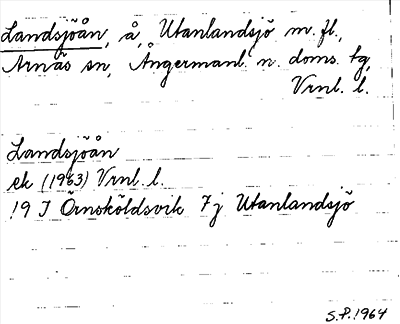 Landsjöån, å, Utanlandsjö m. fl.,
Arnäs sn, Ångermanl. n. doms. tg,
Vrnl. l.
Landsjöån
ek (1963) Vrnl. l.
19 J Örnsköldsvik 7j Utanlandsjö
S.P. 1964